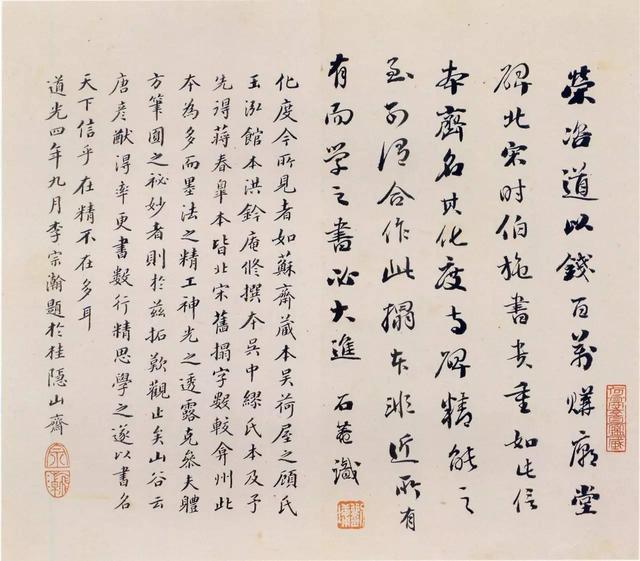 榮咨道以錢百萬購廟堂
碑北宋時伯施書貴重如此信
本齊名其化度寺碑精能之
至前得合作此搨本非近所有
有而学之書必大進 石菴識
化度今所見者如蘇齋藏本吳荷屋之顧氏
玉泓館本洪鈐庵修撰本吳中繆氏本及予
先得蔣春皐本皆北宋舊搨字數較弇州此
本為多而墨法之精工神光之透露克叅夫軆
方筆圓之祕妙者則於兹拓歎觀止矣山谷云
唐彥猷得率更書數行精思學之遂以書名
天下信乎在精不在多耳
道光四年九月李宗瀚題於桂隱山齋